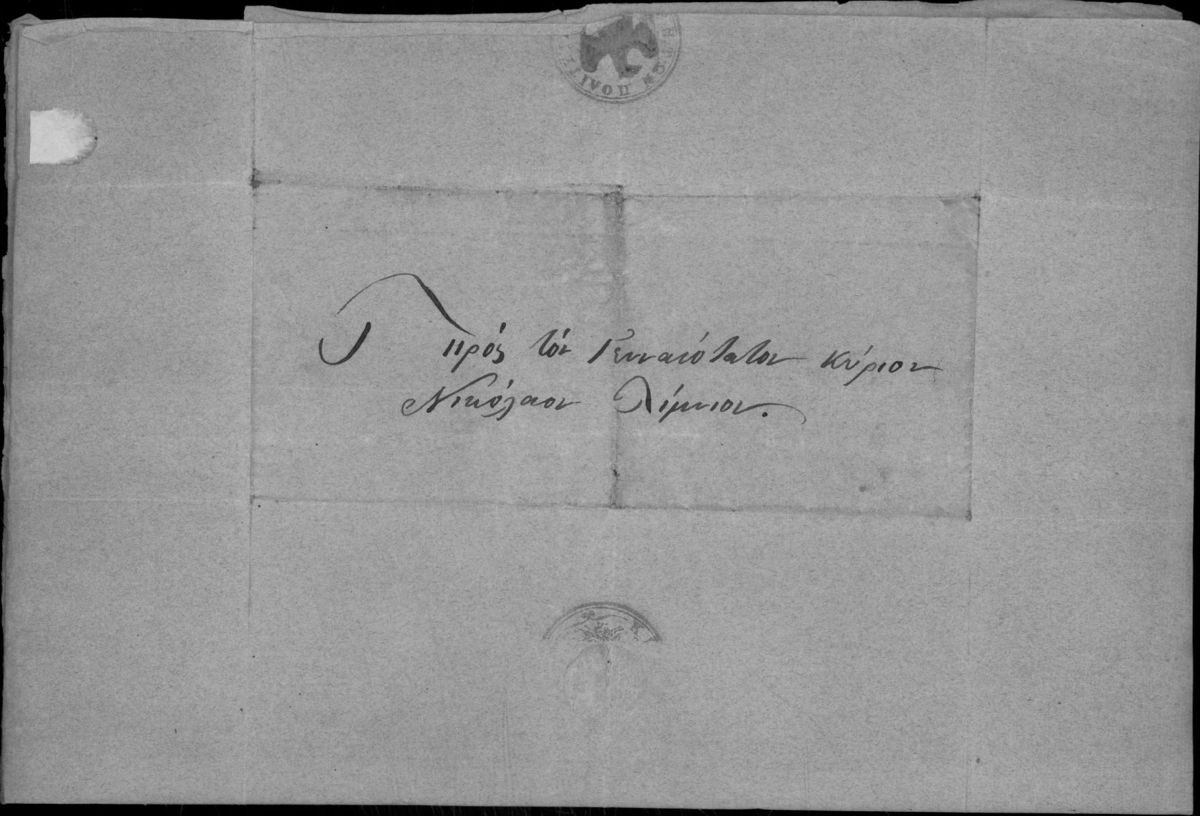 Πρός τόν Γενναιότατον κύριον
Νικόλαον Λίμνιον.